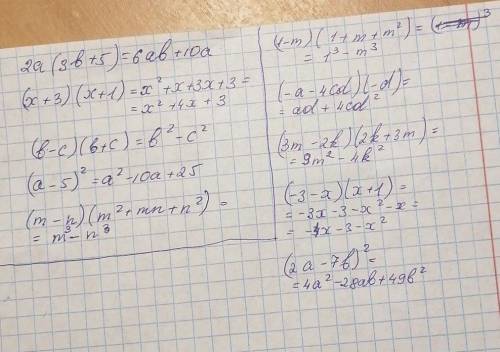 2a(3b+5)=6ab+10a
(x+3)(x+1)=x²+x+3x+3=
=x²+4x+3
(b-c)(b+c)=b²-c²
(a-5)²=a²-10a+25
(m-n)(m²+mn+n²)=
=m³-n³
(1-m)(1+m+m²)=
=1³-m³
(-a-4cd)(-d)=
=ad+4cd²
(3m-2k)(2k+3m)=
=9m²-4k²
(-3-x)(x+1)=
=-3x-3-x²-x=
=-4x-3-x²
(2a-7b)²=
=4a²-28ab+49b²